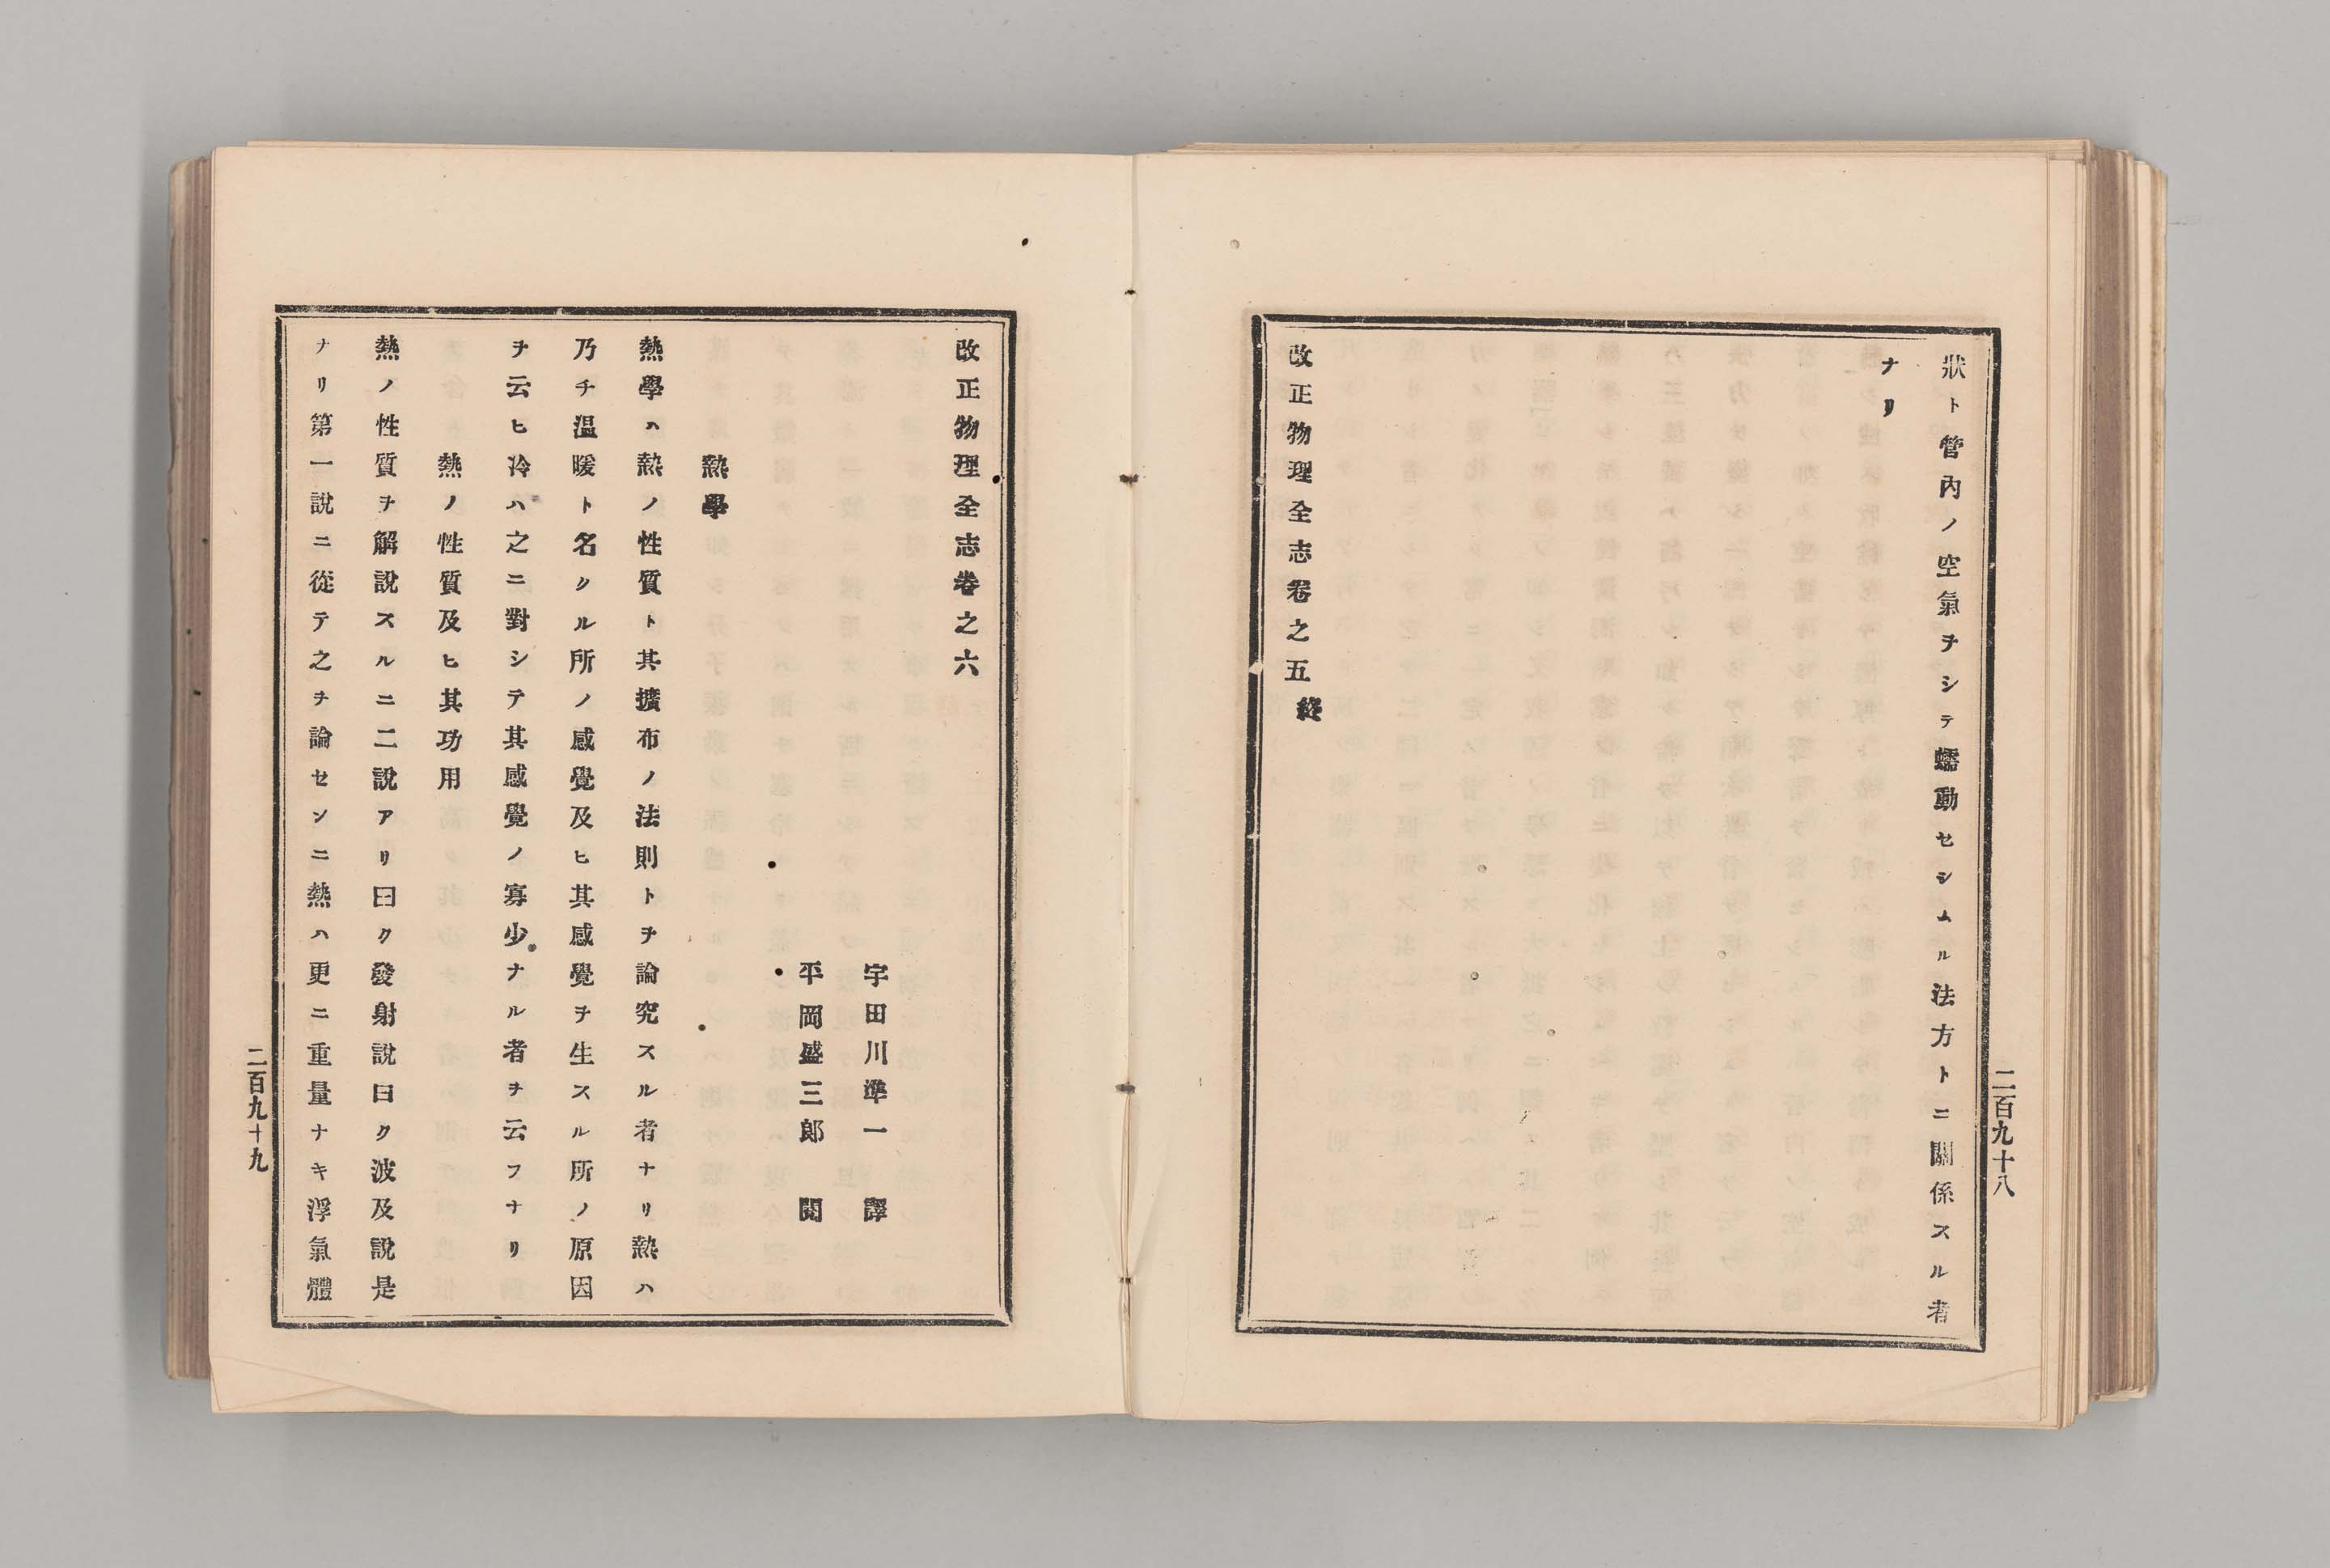 狀ト管内ノ空氣ヲシテ蠕動セシムル法方トニ關係スル者
ナリ
改正物理全志卷之五終
二百九十八
改正物理全志卷之六
宇田川準一　譯
平岡盛三郎　閲
熱學
熱學ハ熱ノ性質ト其擴布ノ法則トヲ論究スル者ナリ熱ハ
乃チ温暖ト名クル所ノ感覺及ヒ其感覺ヲ生スル所ノ原因
ヲ云ヒ冷ハ之ニ對シテ其感覺ノ寡少ナル者ヲ云フナリ
熱ノ性質及ヒ其功用
熱ノ性質ヲ解說スルニ二說アリ曰ク發射說曰ク波及說是
ナリ第一說ニ從テ之ヲ論センニ熱ハ更ニ重量ナキ浮氣體
二百九十九